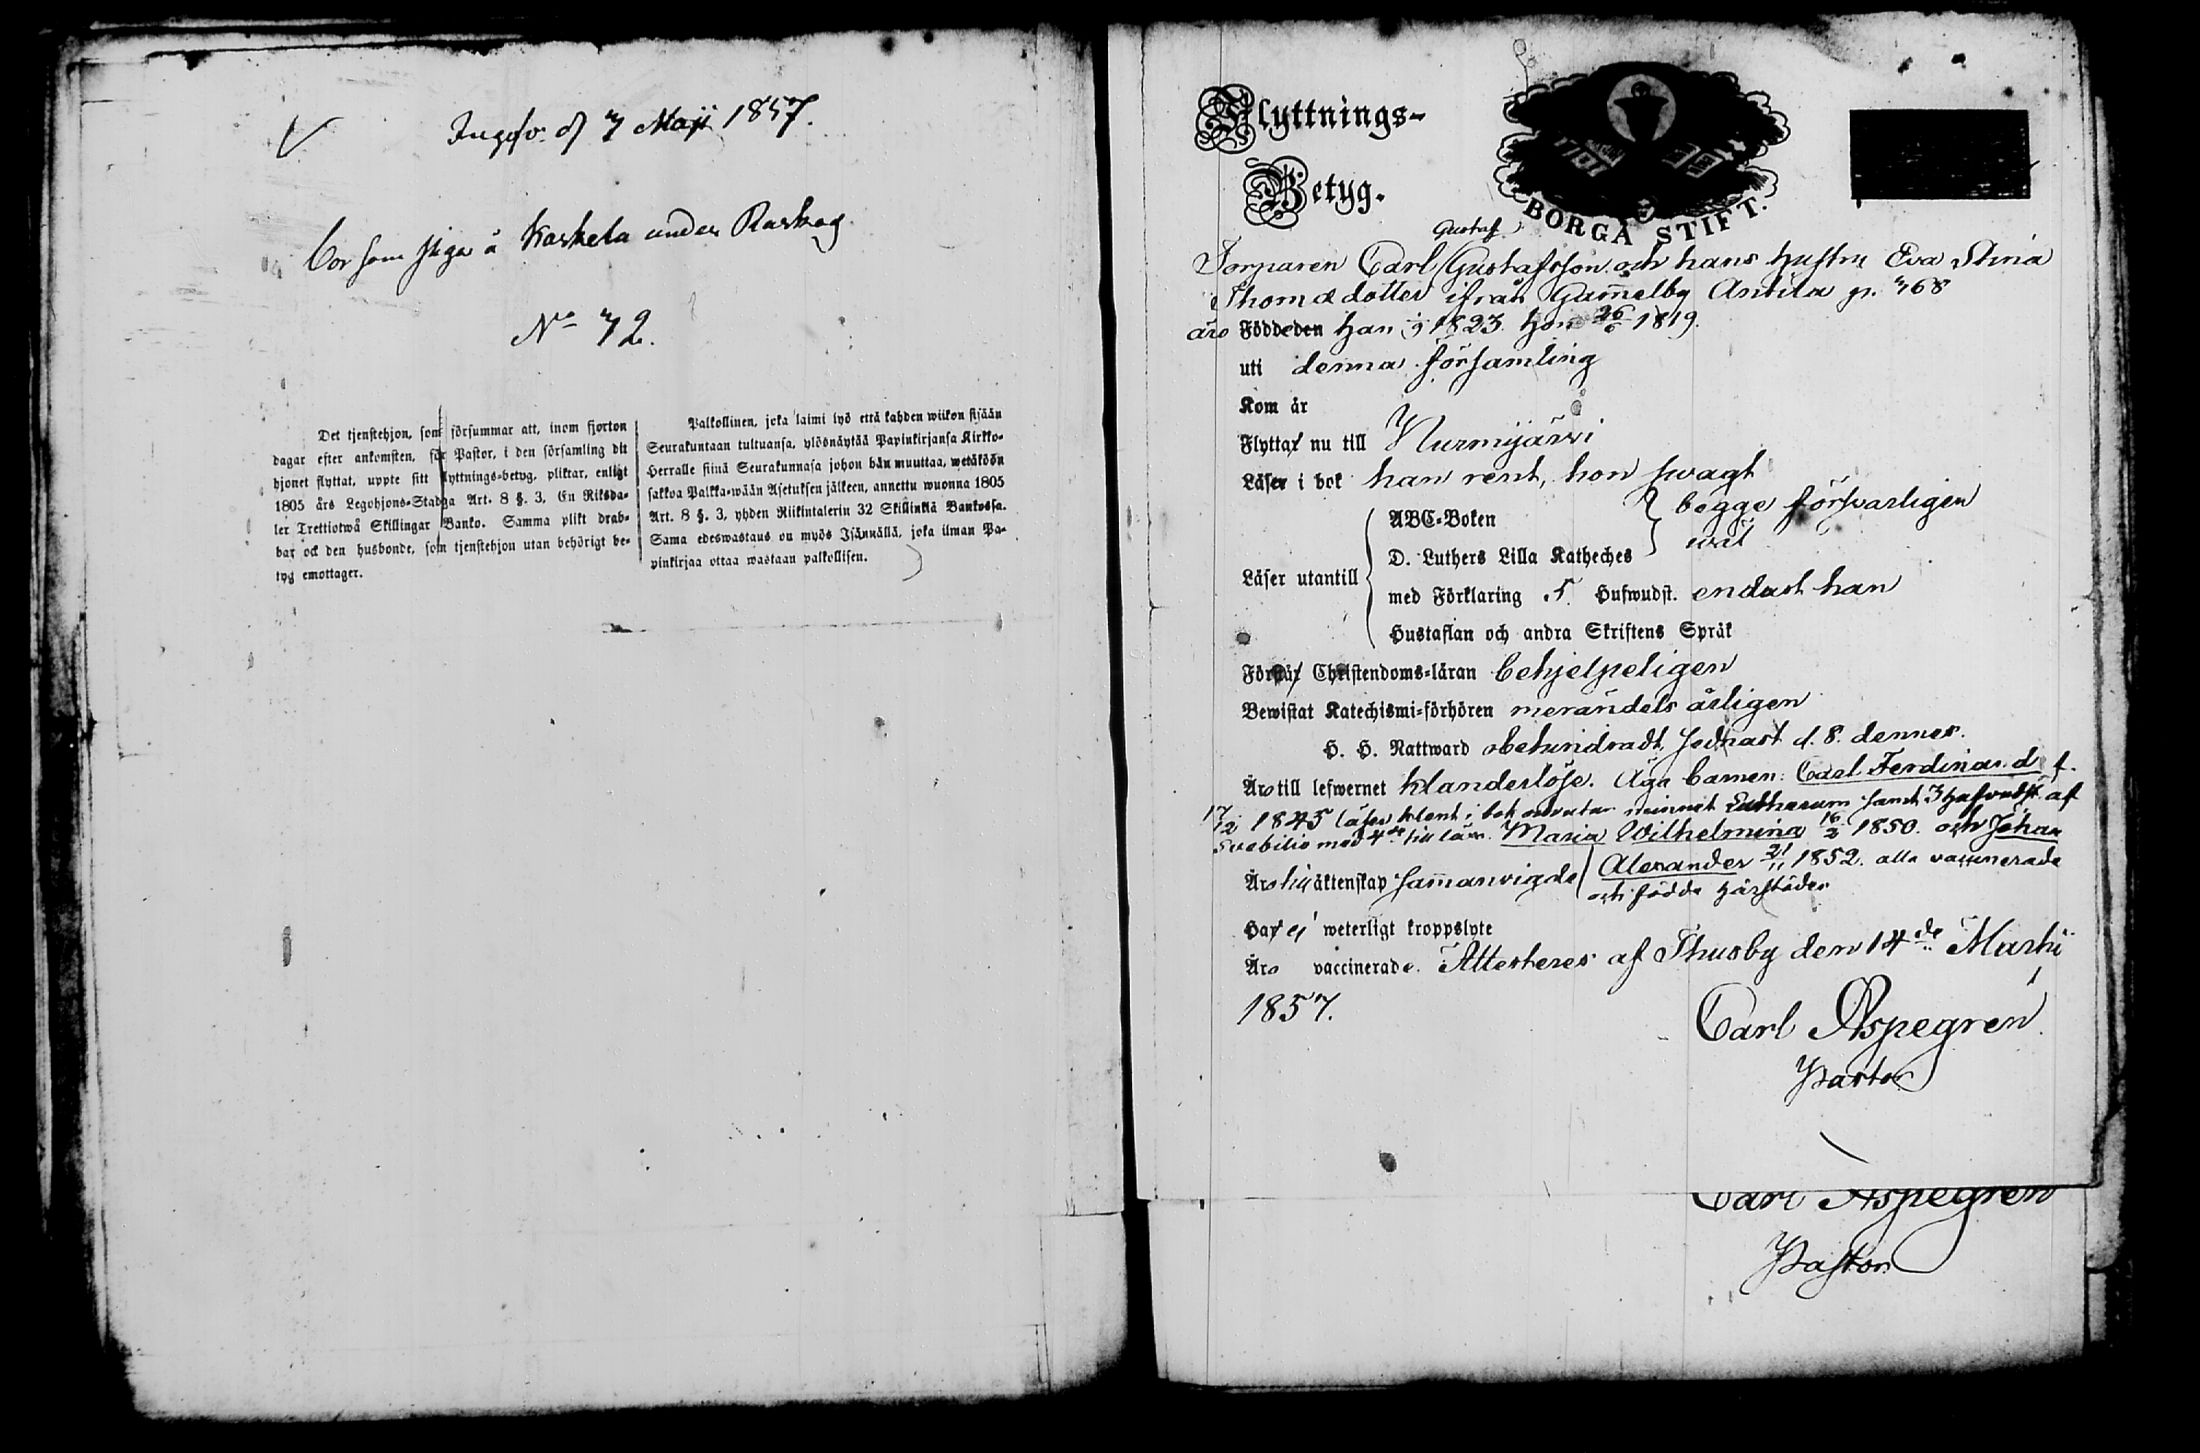 Ingifv. d 7 Maji 1857.
Bor som piga å Karhela under Raskog
No 72.
Det tjenstehjon, som försummar att, inom fjorton
dagar efter ankomsten, för Pastor, i den församling dit
hjonet flyttat, uppte sitt flyttnings-betyg, pliktar, enligt
1805 års Legohjons-Stadga Art. 8 §. 3, En Riksda-
ler Trettiotwå Skillingar Banko. Samma plikt drab-
bar ock den husbonde, som tjenstehjon utan behörigt be-
tyg emottager.
Palkollinen, joka laimi lyö että kahden wiikon sisään
Seurakuntaan tultuansa, ylösnäytää Papinkirjansa Kirkko-
Herralle siinä Seurakunnasa johon hän muuttaa, wetäköön
sakkoa Palkka-wään Asetuksen jälkeen, annettu wuonna 1805
Art. 8 §. 3, yhden Riikintalerin 32 Skillinkiä Bankossa.
Sama edeswastaus on myös Isännällä, joka ilman Pa-
pinkirjaa ottaa wastaan palkollisen.
Flyttnings-
Betyg.
BORGÅ STIFT.
Gustaf
Torparen Carl Gustafsson och hans hustru Eva Stina
Thomædotter ifrån Gammelby Anttila p. 768
äro Födde den Han 1/9 1823 Hon 26/6 1819.
uti denna församling
Kom år
Flyttar nu till Nurmijärvi
Läser i bok han rent, hon svagt
ABC-Boken
begge försvarligen
D. Luthers Lilla Katheches
wäl
Läser utantill
med Förklaring 5 Hufwudst. endast han
Hustaflan och andra Skriftens Språk
Förstår Christendoms-läran behjelpeligen
Bewistat Katechismi-förhören merändels årligen
H. H. Nattward obehindradt, sednast d. 8. dennes.
Äro till lefwernet klanderlöse. Äga barnen: Carl Ferdinand f.
17/12 1845 läser klent i bok minnet Lutherum samt 3 Hufvudst. af
Svebilio med 4de till läxa. Maria Wilhelmina 16/2 1850. och Johan
Äro till äktenskap sammanvigde
Alexander 21/11 1852. alla vaccinerade
och födde härstädes
Har ej weterligt kroppslyte
Äro vaccinerade. Attesteres af Thusby den 14de Martii
1857.
Carl Aspegren
Pastor
Carl Aspegren
Pastor